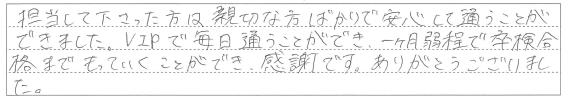 担当して下さった方は親切な方ばかりで安心して通うことが
できました。VIPで毎日通うことができ、一ヶ月弱程で卒検合
格までもっていくことができ、感謝です。ありがとうございまし
た。